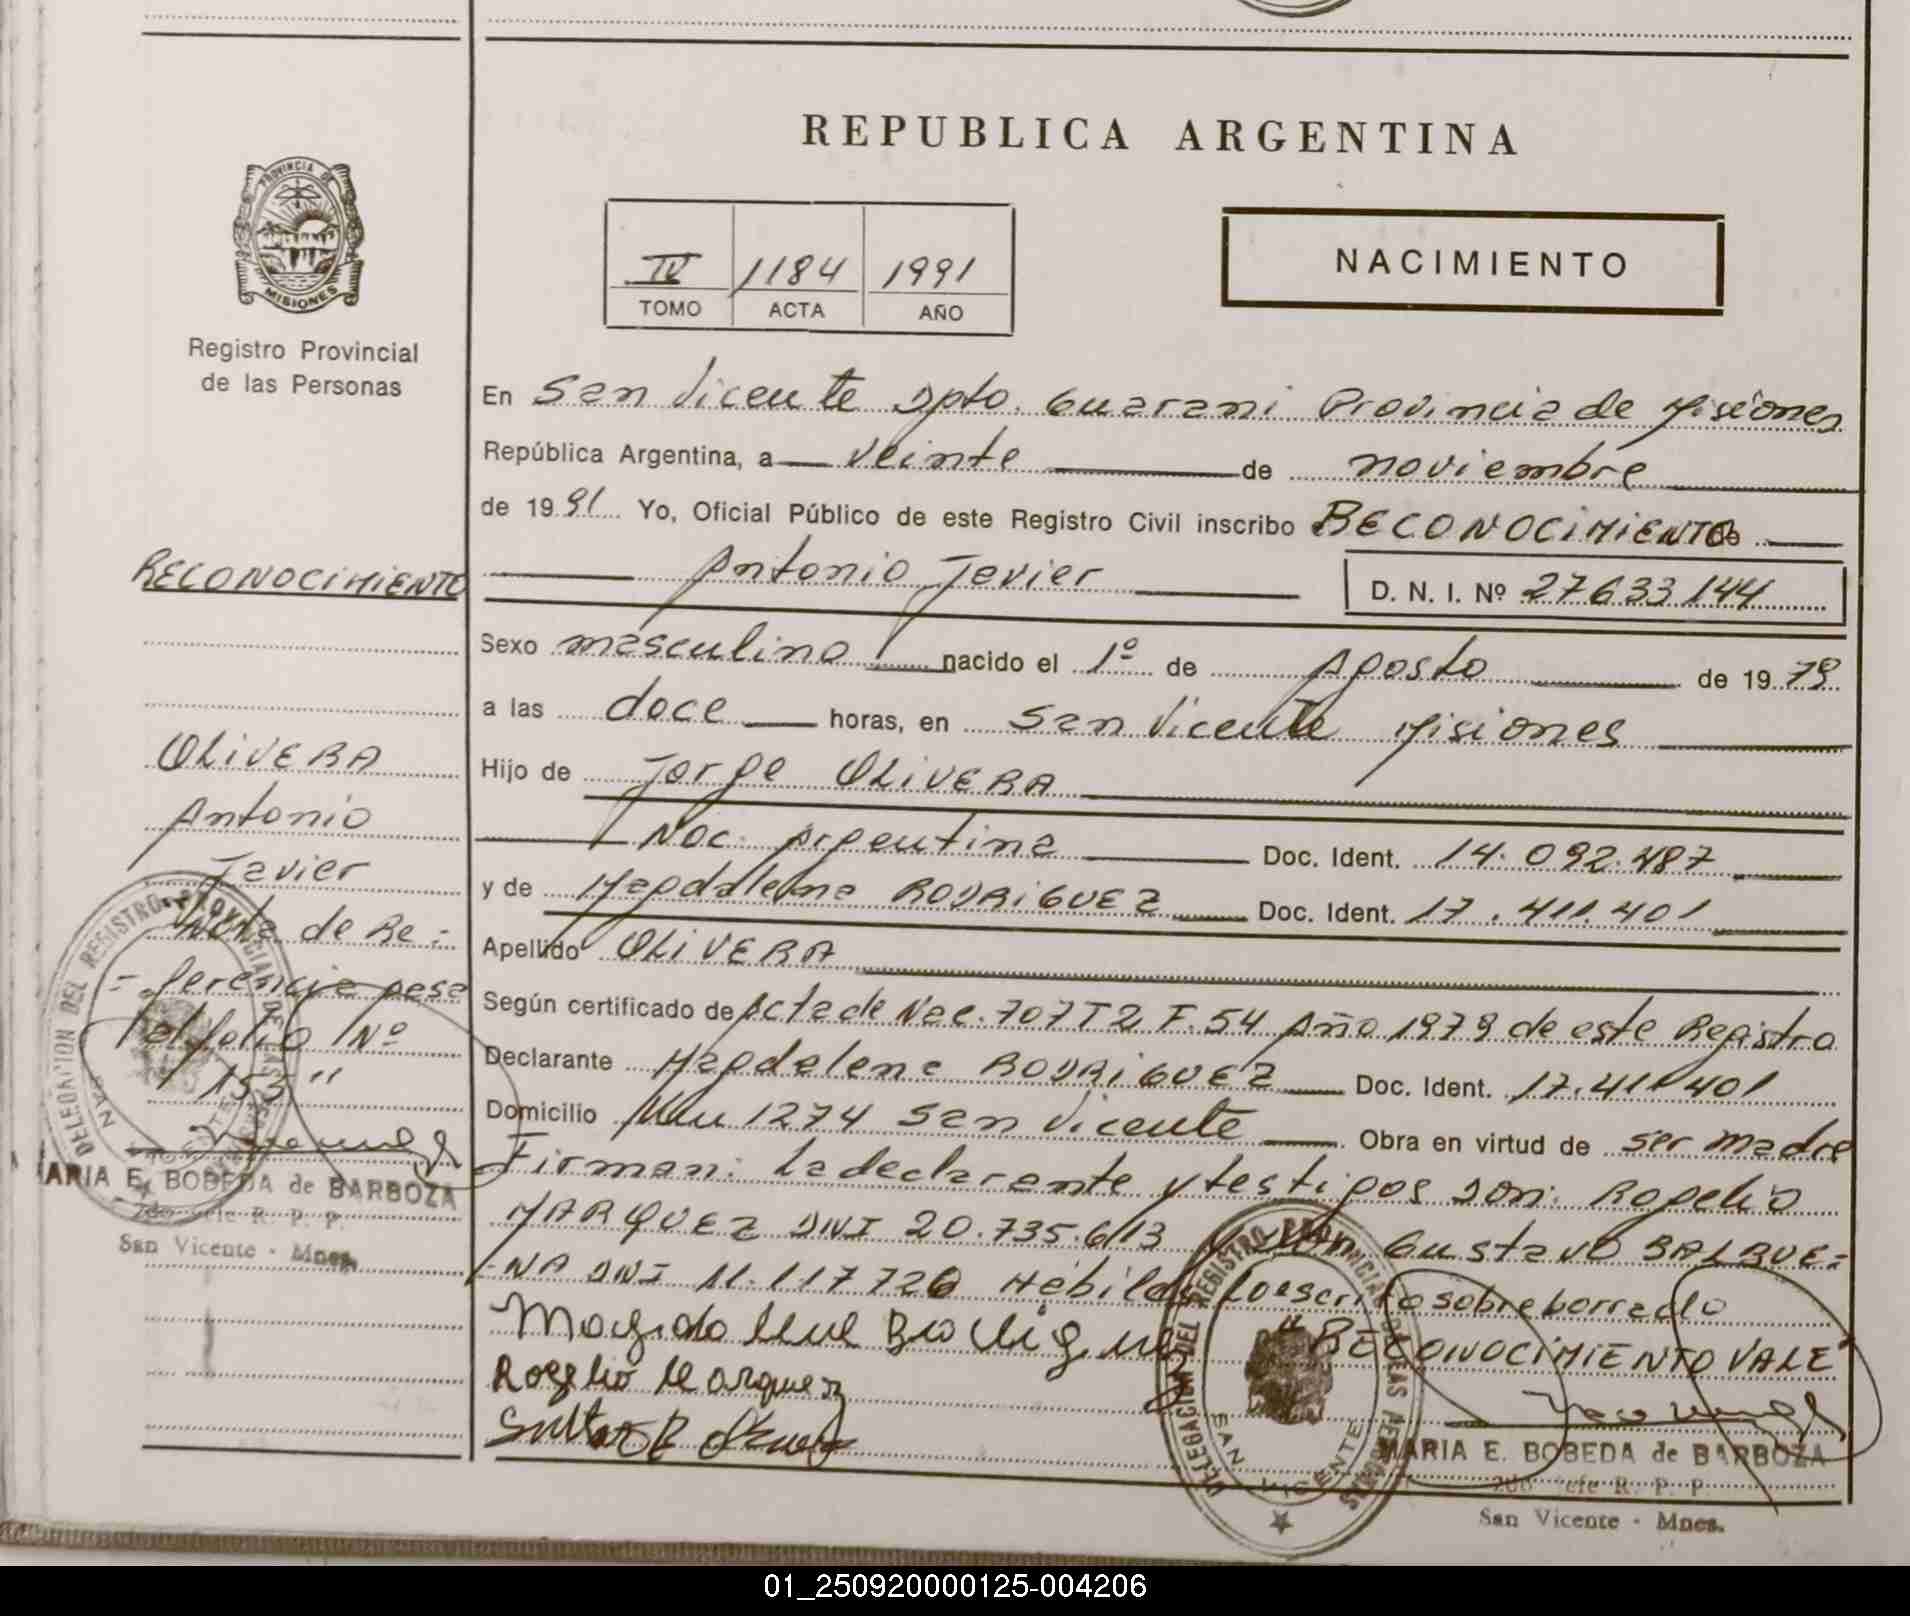 REPUBLICA ARGENTINA
PROVINCIA DE
MISIONES
Registro Provincial
de las Personas
IV 1184 1991
TOMO ACTA AÑO
NACIMIENTO
En San Vicente Dpto. Guarani Provincia de Misiones
República Argentina, a veinte de noviembre
de 1991 Yo, Oficial Público de este Registro Civil inscribo RECONOCIMIENTO de
Antonio Javier D. N. I. Nº 27633144
Sexo masculino nacido el 1º de Agosto de 1979
a las doce horas, en San Vicente Misiones
Hijo de Jorge OLIVERA
Nac. Argentina Doc. Ident. 14.092.487
y de Magdalena RODRIGUEZ Doc. Ident. 17.411.401
Apellido OLIVERA
Según certificado de Acta de Nac. 707 T2 F. 54 Año 1979 de este Registro
Declarante Magdalena RODRIGUEZ Doc. Ident. 17.411.401
Domicilio Km 1274 San Vicente Obra en virtud de ser madre
Firman: La declarante y testigos son: Rogelio
MARQUEZ DNI 20.735.613 y Gustavo BALBUE-
-NA DNI 11.117.726 Hábiles lo escrito sobreborrado
"RECONOCIMIENTO VALE"
Rogelio Marquez
MARIA E. BOBEDA de BARBOZA
2do Jefe R. P. P.
San Vicente - Mnes.
DELEGACION DEL REGISTRO PROVINCIAL DE LAS PERSONAS
SAN VICENTE
RECONOCIMIENTO
OLIVERA
Antonio
Javier
Nota de Re-
-ferencia pasa
al folio Nº
153"
ARIA E. BOBEDA de BARBOZA
2do Jefe R. P. P.
San Vicente - Mnes.
DELEGACION DEL REGISTRO PROVINCIAL DE LAS PERSONAS
SAN VICENTE
01_250920000125-004206